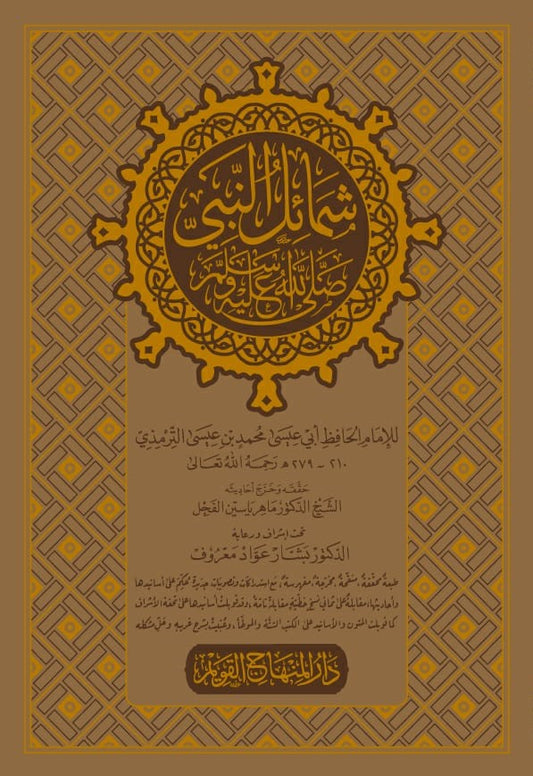 شَمَائِلُ النَّبِيِّ
صَلَّى اللَّهُ عَلَيْهِ وَسَلَّمَ
للإمَامِ الحَافِظِ أَبِي عِيسَى مُحَمَّدِ بْنِ عِيسَى التِّرْمِذِيّ
٢١٠ - ٢٧٩ هـ رَحِمَهُ اللهُ تَعَالى
حَقَّقَهُ وَخَرَّجَ أَحَادِيثَه
الشَّيْخُ الدّكتُور مَاهِر يَاسِين الفَحْل
تحت إشراف ورعاية
الدّكتُور بَشَّار عَوَّاد مَعْرُوف
طبعةٌ محقّقةٌ، منقّحةٌ، مخرّجةٌ، مفهرسةٌ، مع استدراكات وتصويبات جديدة وحكمٍ على أسانيدها
وأحاديثها، مقابلةٌ على ثماني نسخٍ خطّيّةٍ مقابلةً تامّةً، وقد قوبلت أسانيدها على تحفة الأشراف
كما قوبلت المتون والأسانيد على الكتب الستّة والموطّأ، وعُنِيَت بشرح غريبه وحلّ مشكله
دَارُ المِنْهَاجِ القَوِيمِ